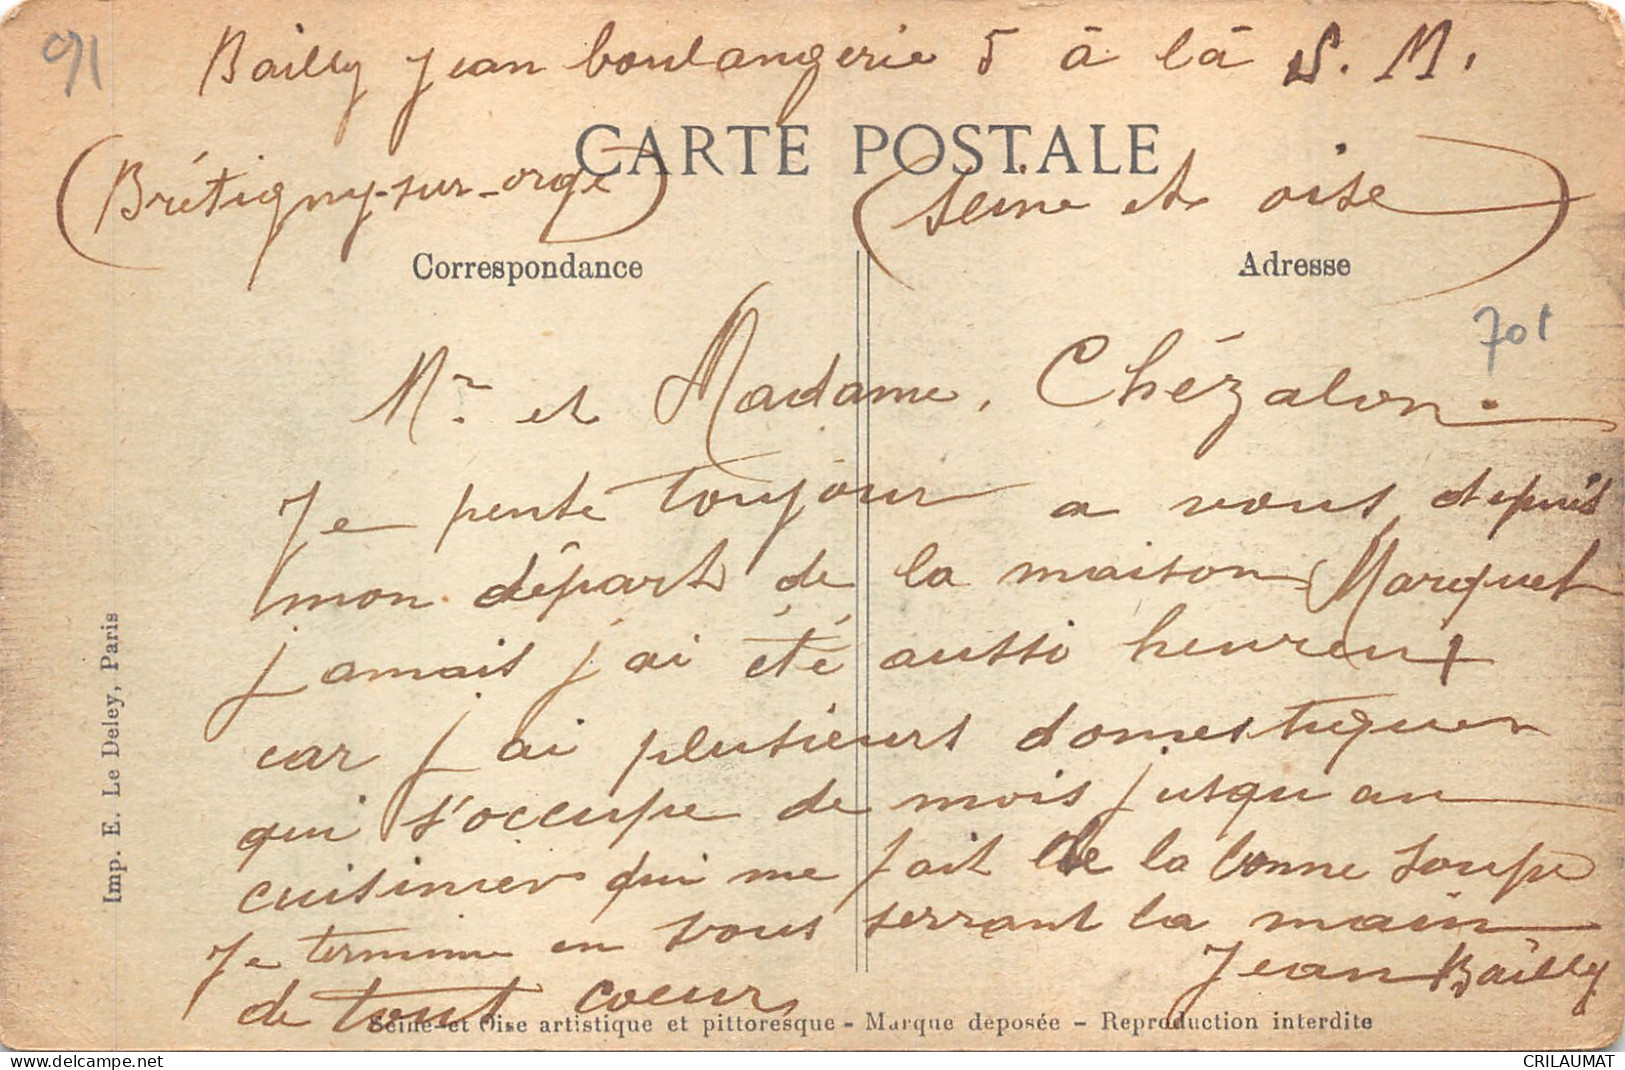 91
Bailly Jean boulangerie 5 à là S. M.
CARTE POSTALE
(Brétigny-sur-orge) (Seine et oise)
Correspondance
Adresse
701
Mr et Madame, Chézalon.
Je pense toujour a vous depuis
mon départ de la maison Marquet
jamais j'ai été aussi heureux
car j'ai plusieurs domestiques
qui s'occupe de mois jusqu au
cuisinier qui me fait de la bonne soupe
Je termine en vous serrant la main
de tout coeur Jean Bailly
Imp. E. Le Deley, Paris
Seine-et Oise artistique et pittoresque - Marque deposée - Reproduction interdite
CRILAUMAT